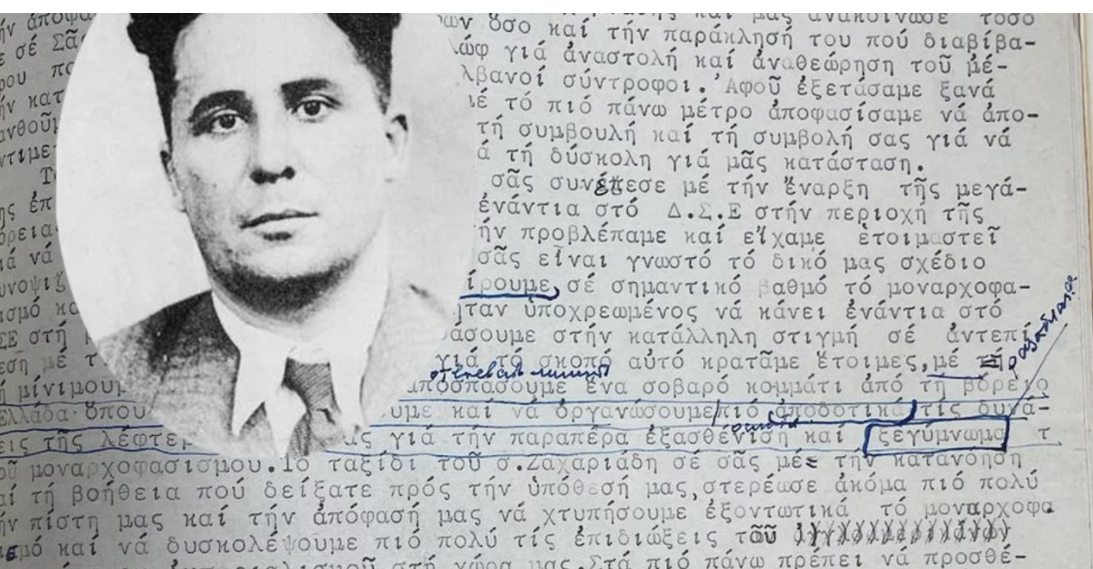 ήν ἀποφα ων ὅσο καί τήν παράκλησή του πού διαβίβα-
ε σέ Σᾶς λώφ γιά ἀναστολή καί ἀναθεώρηση τοῦ μέ-
ρου λβανοί σύντροφοι. Ἀφοῦ ἐξετάσαμε ξανά
ήν κατ ιέ τό πιό πάνω μέτρο ἀποφασίσαμε νά ἀπο-
ανθοῦμ τή συμβουλή καί τή συμβολή σας γιά νά
ντιμε ά τή δύσκολη γιά μᾶς κατάσταση.
σᾶς συνέπεσε μέ τήν ἔναρξη τῆς μεγά-
ης ἐπ ἐνάντια στό Δ.Σ.Ε στήν περιοχή τῆς
όρεια ήν προβλέπαμε καί εἴχαμε ἑτοιμαστεῖ
ιά νά σᾶς εἶναι γνωστό τό δικό μας σχέδιο
υνοψιζ ίρουμε σέ σημαντικό βαθμό τό μοναρχοφα-
ισμό κα ἦταν ὑποχρεωμένος νά κάνει ἐνάντια στό
ΣΕ στή άσουμε στήν κατάλληλη στιγμή σέ ἀντεπί
εση μέ τ γιά τό σκοπό αὐτό κρατᾶμε ἕτοιμες, μέ
ή μίνιμουμ ἀποσπάσουμε ἕνα σοβαρό κομμάτι ἀπό τή βόρειο
Ἑλλάδα ὅπου ουμε καί νά ὀργανώσουμε πιό ἀποδοτικά τίς δυνά-
εις τῆς λεφτερ ᾶς γιά τήν παραπέρα ἐξασθένιση καί ξεγύμνωμα τ
οῦ μοναρχοφασισμοῦ. Τό ταξίδι τοῦ σ. Ζαχαριάδη σέ σᾶς μέ τήν κατανόηση
αί τή βοήθεια πού δείξατε πρός τήν ὑπόθεσή μας, στερέωσε ἀκόμα πιό πολύ
ήν πίστη μας καί τήν ἀπόφασή μας νά χτυπήσουμε ἐξοντωτικά τό μοναρχοφα
ισμό καί νά δυσκολέψουμε πιό πολύ τίς ἐπιδιώξεις τοῦ
ἰμπεριαλισμοῦ στή χώρα μας. Στά πιό πάνω πρέπει νά προσθέ-